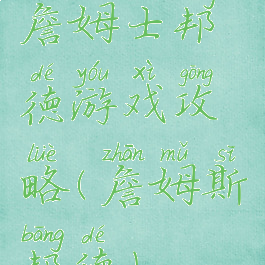 詹姆士邦
dé yóu xì gōng
德游戏攻
lüè zhān mǔ sī
略(詹姆斯
bāng dé
邦德)